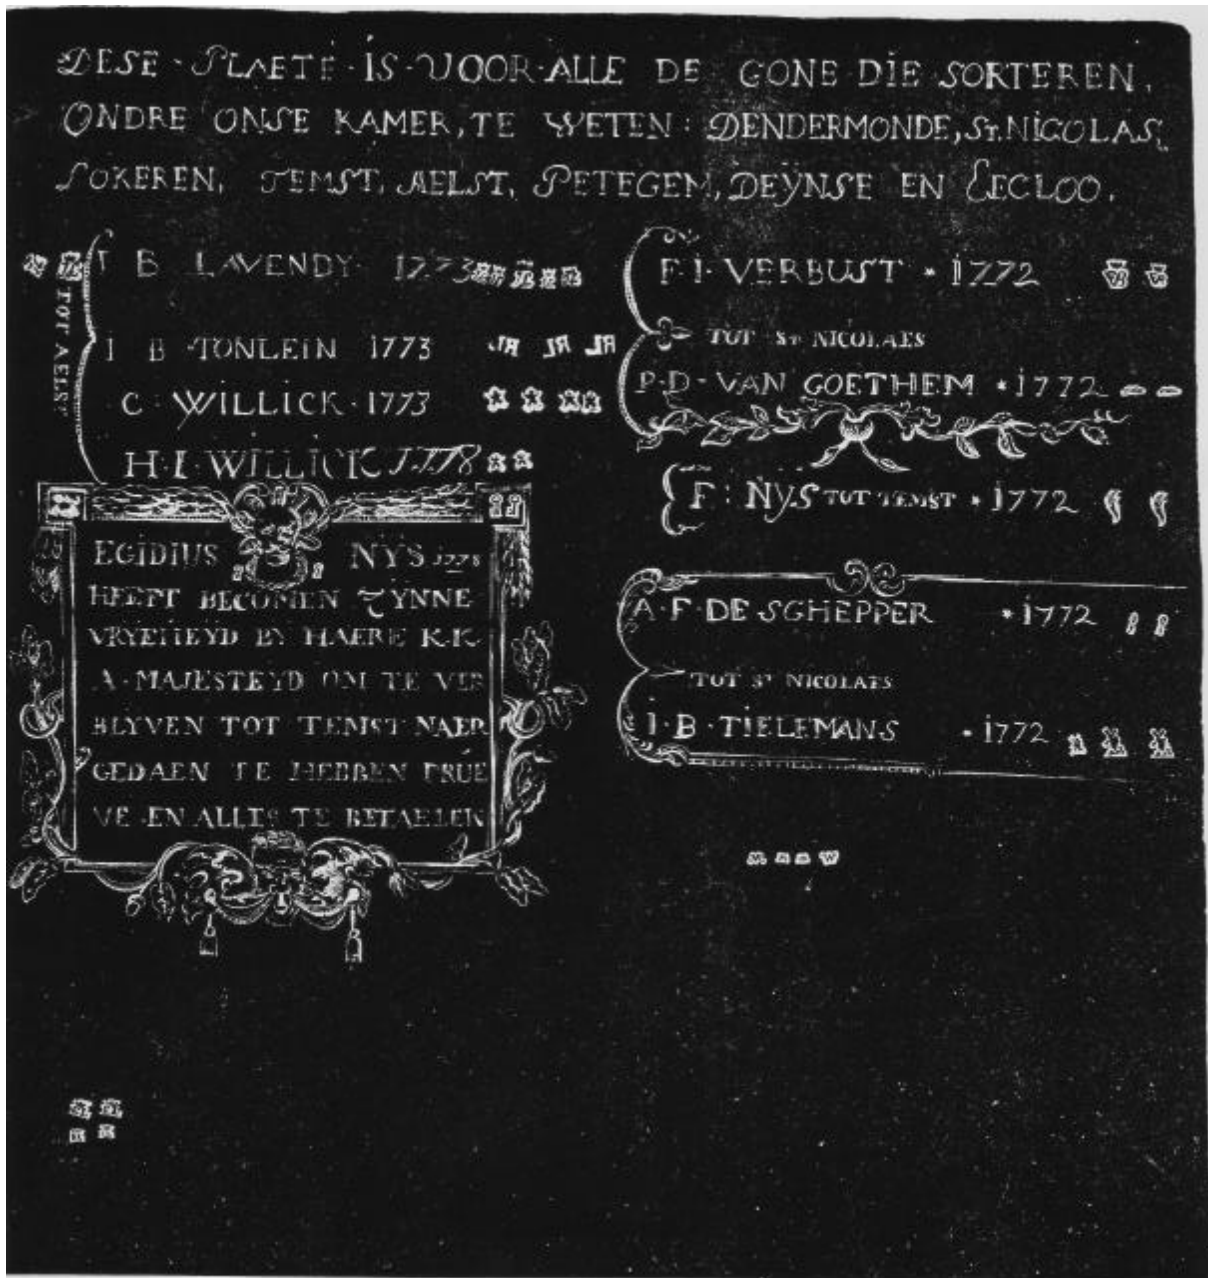 DESE · PLAETE · IS · VOOR · ALLE DE GONE DIE SORTEREN,
ONDRE ONSE KAMER, TE WETEN: DENDERMONDE, St. NICOLAS,
LOKEREN, TEMST, AELST, PETEGEM, DEŸNSE EN EECLOO.
TOT AELST
I B LAVENDY · 1773
I B · TONLEIN 1773
C · WILLICK · 1773
H · I · WILLICK 1778
EGIDIUS NŸS 1778
HEEFT BECOMEN ZYNNE
VRYEHEYD BY HAERE K.K.
A · MAJESTEYD OM TE VER
BLYVEN TOT TEMST NAER
GEDAEN TE HEBBEN PRUE
VE EN ALLES TE BETAELEN
F · I · VERBUST * 1772
TOT St NICOLAES
P · D · VAN GOETHEM * 1772
F : NYS TOT TEMST * 1772
A · F · DE SCHEPPER * 1772
TOT St NICOLAES
I · B · TIELEMANS * 1772